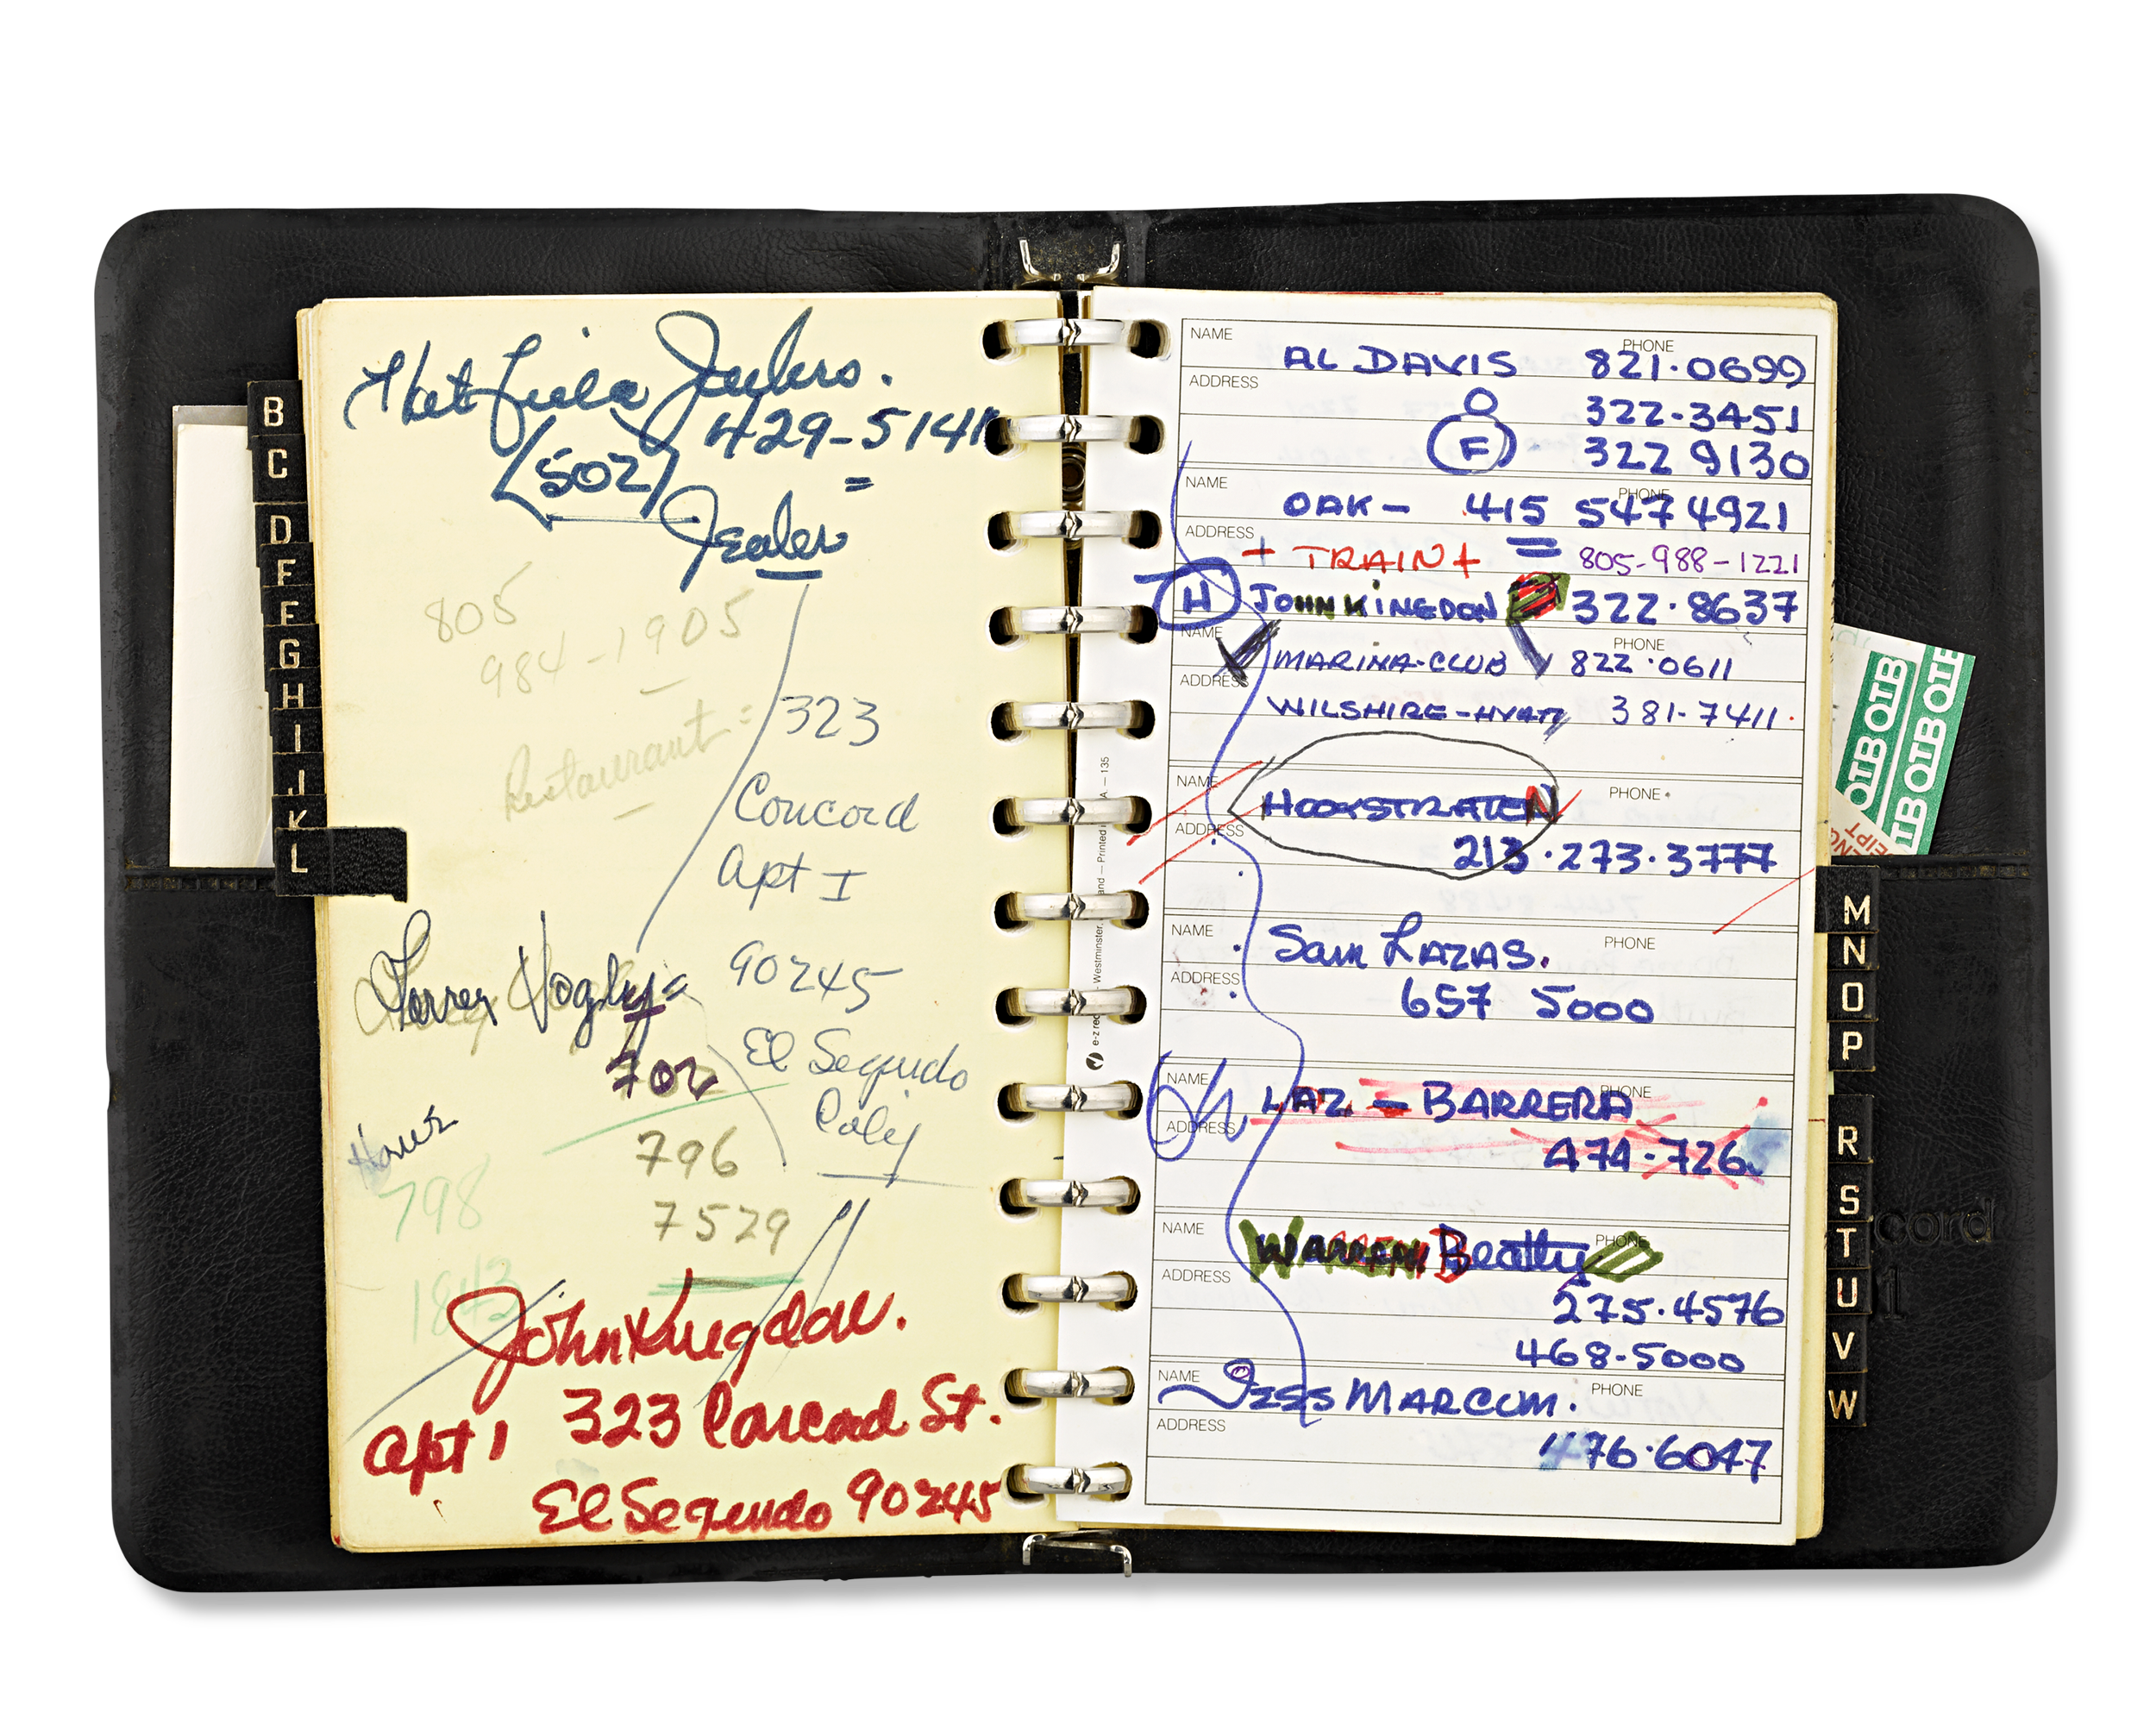 B
C
D
F
F
G
H
I
J
K
L
429-5141
(502)
=
Dealer
805
984-1905
Restaurant =
323
Concord
Apt I
90245
El Segundo
Calif
702
796
7529
798
1843
John Kingdon.
323 Concord St.
Apt 1
El Segundo 90245
NAME PHONE
AL DAVIS 821·0699
ADDRESS
O 322-3451
F - 322 9130
NAME PHONE
OAK - 415 547 4921
ADDRESS
+ TRAIN + = 805-988-1221
H JOHN KINGDON 322·8637
NAME PHONE
MARINA-CLUB 822·0611
ADDRESS
WILSHIRE-HYATT 381-7411·
NAME PHONE
HOOKSTRATEN
ADDRESS
213·273·3777
NAME PHONE
Sam LAZAS.
ADDRESS
657 5000
NAME PHONE
LAZ - BARRERA
ADDRESS
474-726
NAME PHONE
WARREN Beatty
ADDRESS
275·4576
468-5000
NAME PHONE
JESS MARCUM.
ADDRESS
476·6047
Westminster,
Printed
135
OTB OTB
OTB OTB
M
N
O
P
R
S
T
U
V
W
cord